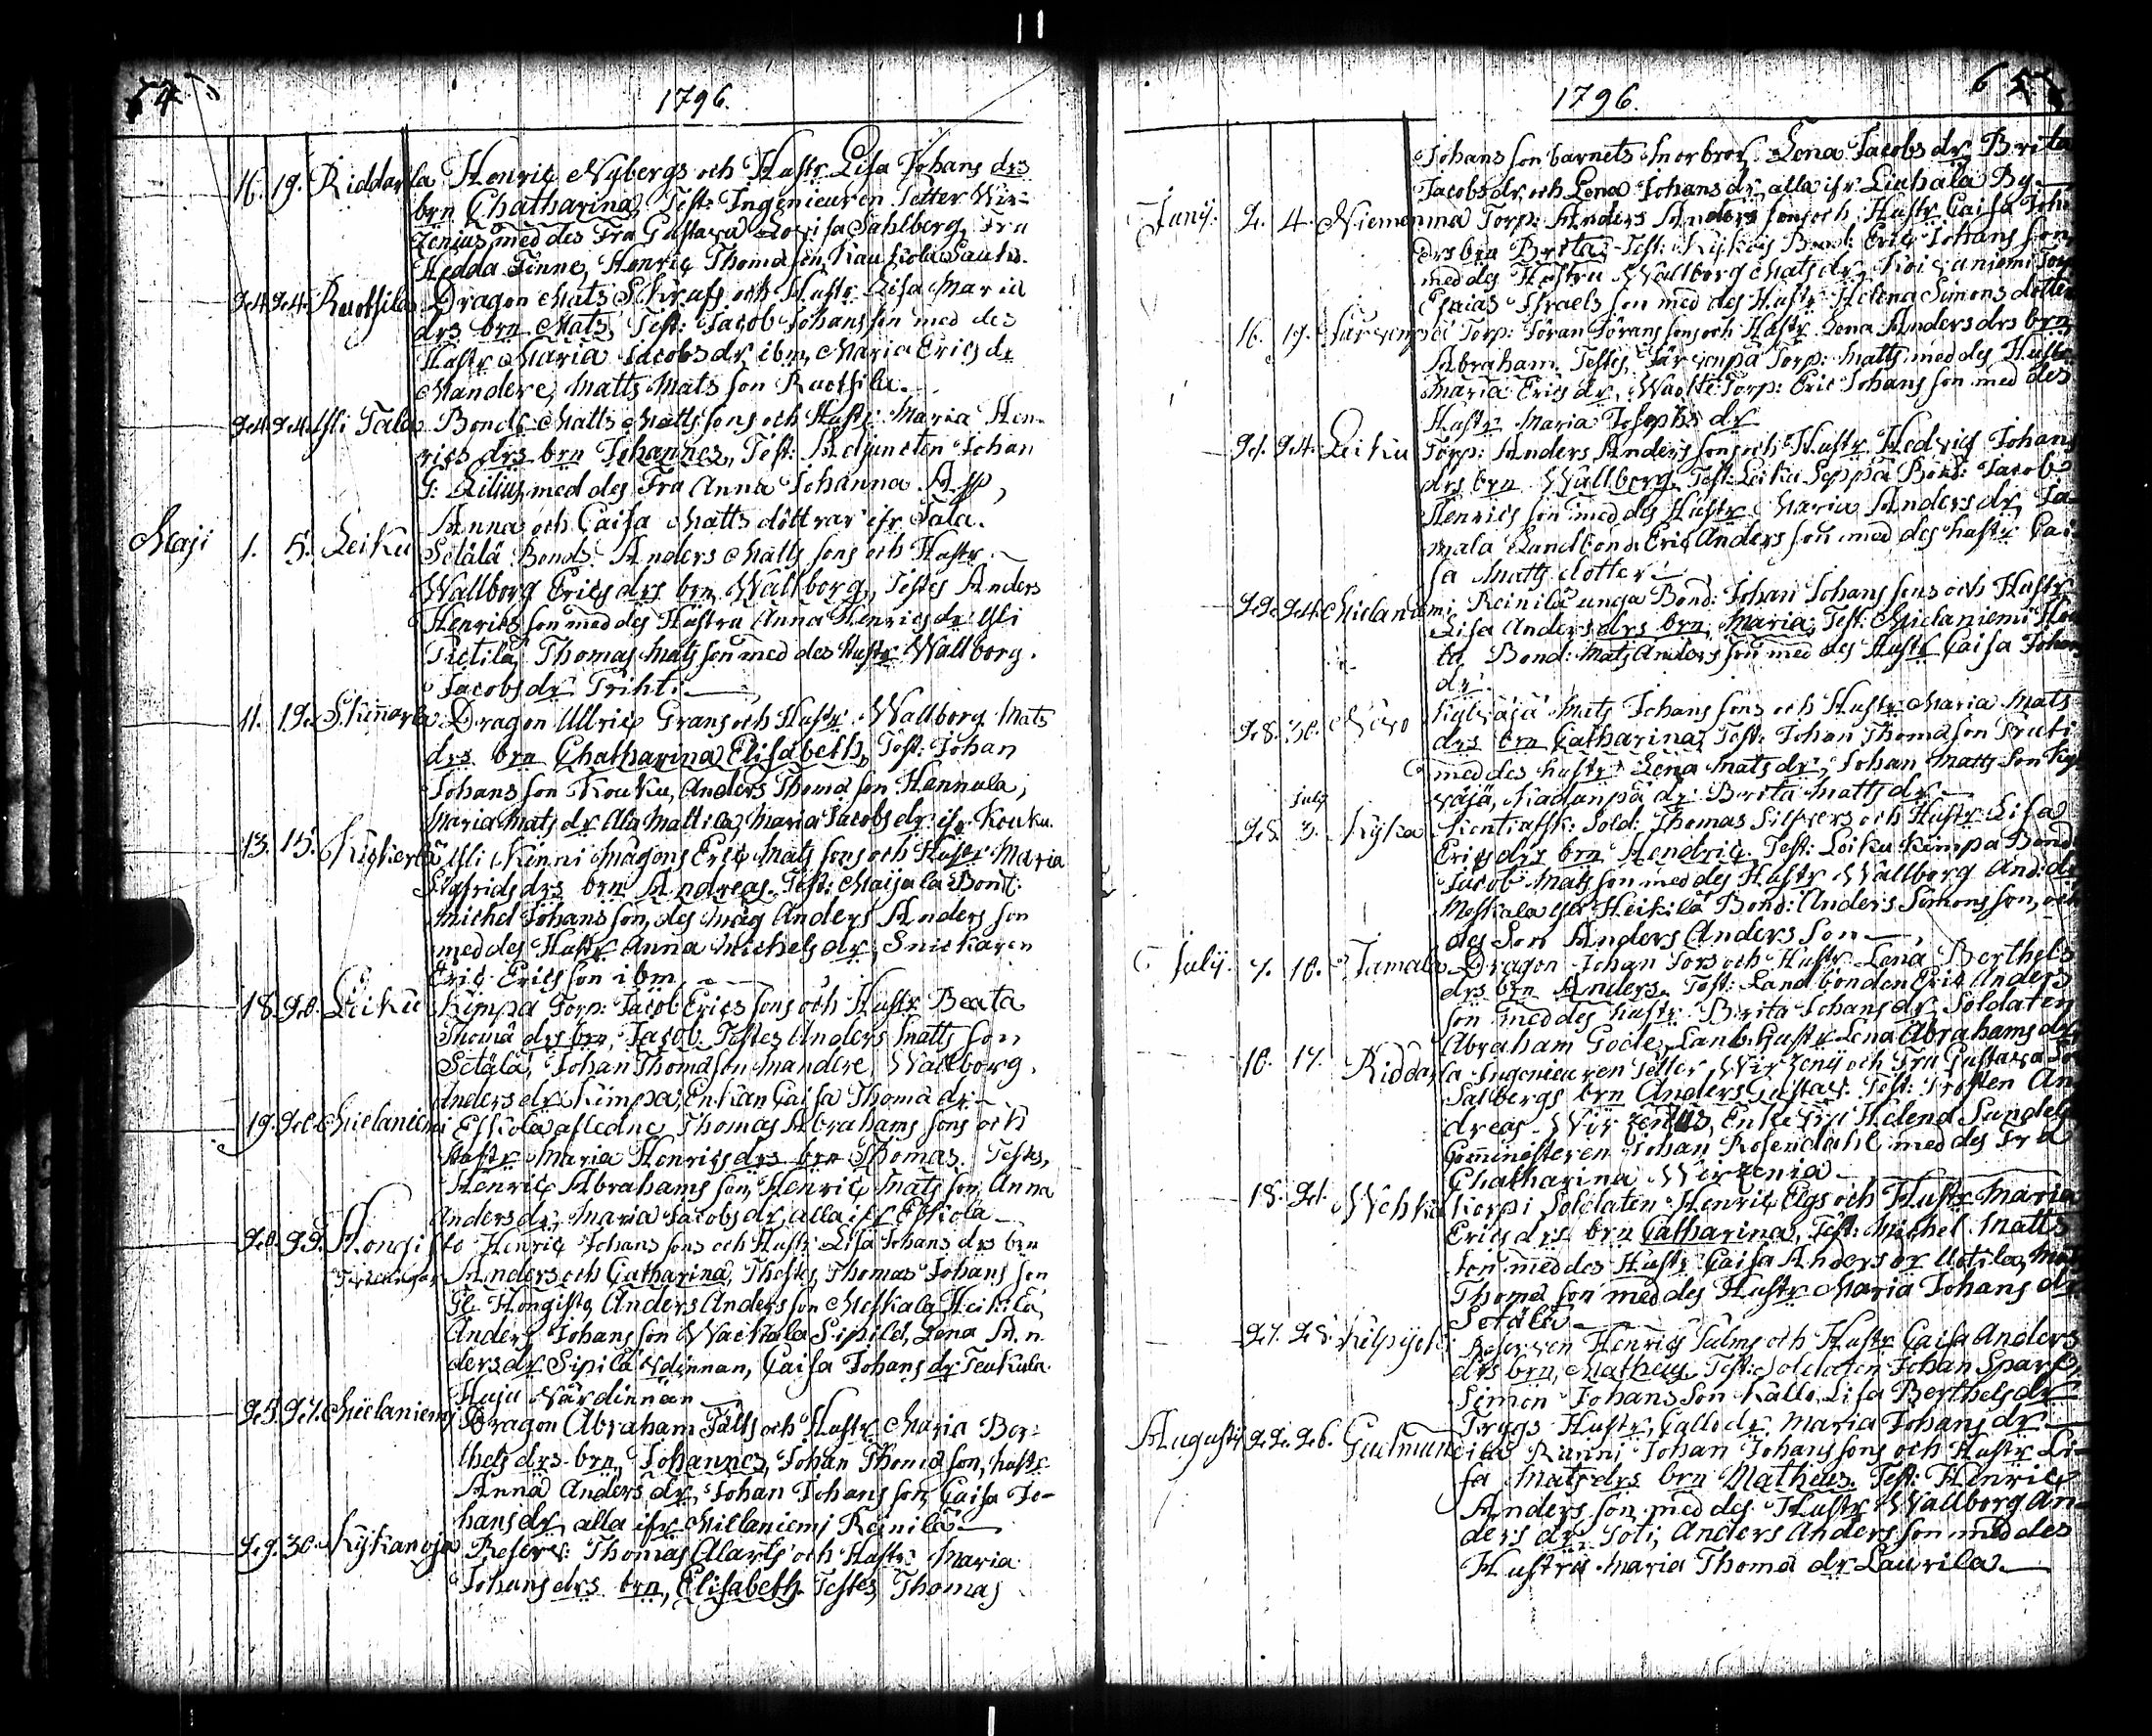 64
1796.
16. 19. Riddarla Henric Nybergs och Hustr Lisa Johans drs
brn Chatharina, Test: Ingenieuren Petter Wir-
zenius med des Fru Gustava Lovisa Sahlberg, Fru
Hedda Finne, Henric Thomason Kaukola
24. 24. Ruotsila Dragon Mats och Hustr Lisa Maria
drs brn Mats, Test: Jacob Johansson med des
Hustr Maria Jacobs dr ibm, Maria Erics dr
Mandere, Matts Mats son Ruotsila.
24. 24. Yli Tala Bond: Matts Mattssons och Hustr Maria Hen-
rics drs brn Johannes, Test: Adjuncten Johan
G: Lilius, med des Fru Anna Johanna
Anna och Caisa Matts döttrar ifr Tala.
Maji 1. 5. Leiku Setälä Bond: Anders Matts sons och Hustr
Wallborg Erics drs brn Wallborg, Testes Anders
Henrics son med des Hustru Anna Henrics dr Yli
Pietilä, Thomas Mats son med des Hustr Wallborg
Jacobs dr Prihti
11. 12. Skinnarla Dragon Ullric Grans och Hustr Wallborg Mats
drs brn Chatharina Elisabeth, Test: Johan
Johans son Kouku, Anders Thoma son Hannula,
Maria Mats dr Ala Mattila, Maria Jacobs dr ifr Kouku.
13. 15. Yli Kinni Mågens Eric Mats sons och Hustr Maria
Sigfrids drs brn Andreas. Test: Maijala Bond:
Michel Johans son, des Måg Anders Anders son
med des Hustr Anna Michels dr, Snickaren
Eric Ericsson ibm
18. 20. Leiku Kimpa Torp: Jacob Erics sons och Hustr Beata
Thoma drs brn, Jacob. Testes Anders Matts son
Setälä, Johan Thomason Mandere, Wallborg
Anders dr Kimpa, Enkan Caisa Thoma dr
19. 20. Mielaniemi Eskola afledne Thomas Abrahams sons och
Hustr Maria Henrics drs brn Thomas. Testes,
Henric Abrahams son, Henric Mats son, Anna
Anders dr, Maria Jacobs dr, alla ifr Eskola
20. 22. Hongisto Henric Johans sons och Hustr Lisa Johans drs brn
Tvillingar Anders och Catharina, Thestes, Thomas Johans son
Hongisto, Anders Anders son Meskala Heikilä,
Anders Johans son Wackala Sipilä, Lena An-
ders dr Sipilä Vdinnan, Caisa Johans dr Teukula
Huju Värdinnan
25. 27. Mielaniemi Dragon Abraham Fälts och Hustr Maria Ber-
thels drs brn Johannes, Johan Thoma son, hustr
Anna Anders dr, Johan Johans son, Caisa Jo-
hans dr, alla ifr Mielaniemi Reinilä
29. 30. Kykanoja Reserv: Thomas Alarts och Hustr Maria
Johans drs brn, Elisabeth Testes, Thomas
65
1796.
Johans son barnets Morbror. Lena Jacobs dr, Brita
Jacobs dr och Lena Johans dr, alla ifr Liuhala By.
Junij. 2. 4. Niemenma Torp: Anders Anders sons och Hustr Caisa Joh
drs brn Brita. Test: Bond: Eric Johans son
med des Hustru Wallborg Mats dr, Koivuniemi Torp
Esaias Israels son med des Hustr Helena Simons dotter
16. 19. Järvenpä Torp: Jöran Jörans sons och Hustr Lena Anders drs brn
Abraham, Testes, Järvenpä Torp: Matts med des Hustr
Maria Erics dr, Torp: Eric Johans son med des
Hustr Maria Josephs dr
21. 24. Leiku Torp: Anders Anders sons och Hustr Hedvig Johans
drs brn Wallborg. Test: Leiku Seppä Bond: Jacob
Henrics son med des Hustr Maria Anders dr, Ja-
mala Landbond: Eric Anders son med des hustr Cai-
sa Matts dotter
22. 24. Mielaniemi Reinilä unga Bond: Johan Johans sons och Hustr
Lisa Anders drs brn Maria, Test: Mielaniemi
Bond: Mats Anders son med des Hustr Caisa Johan
dr.
28. 30. Mats Johans sons och Hustr Maria Mats
drs brn Catharina, Test: Johan Thomason
med des hustr Lena Mats dr, Johan Matts son
Brita Matts dr
28. July 3. Sold: Thomas Silfvers och Hustr Lisa
Erics drs brn Hendric. Test: Leiku Kimpa Bond
Jacob Mats son med des Hustr Wallborg And: dr
Meskala Heikilä Bond: Anders Simons son, och
des Son Anders Anders son
July. 7. 10. Jamala Dragon Johan Tors och Hustr Lena Berthels
drs brn Anders. Test: Landbonden Eric Anders
son med des hustr Brita Johans dr, Soldaten
Abraham Hustr Lena Abrahams dr
10. 17. Riddarla Ingenieuren Petter Wirzenij och Fru Gustava Lo
Salbergs brn Anders Gustaf. Test: Prosten An
dreas Wirzenius, Enke Fru Helena Sundel
Comministeren Johan Rosendahl med des Fru
Chatharina Wirzenia
18. 21. Korpi Soldaten Henric Elgs och Hustr Maria
Erics drs brn Catharina, Test: Michel Matts
son med des Hustr Caisa Anders dr Uotila, Mat
Thoma son med des Hustr Maria Johans dr
Setälä
27. 28. Reserven Henrics Palms och Hustr Caisa Anders
drs brn, Matheus. Test: Soldaten Johan Sparf,
Simon Johans son Kallo, Lisa Berthels dr
Trygs Hustr, Maria Johans dr
Augusti 22. 26. Gudmundila Runni Johan Johans sons och Hustr Li-
sa Mats drs brn Matheus. Test: Henric
Anders son med des Hustr Wallborg An-
ders dr Soti, Anders Anders son med des
Hustru Maria Thoma dr Laurila